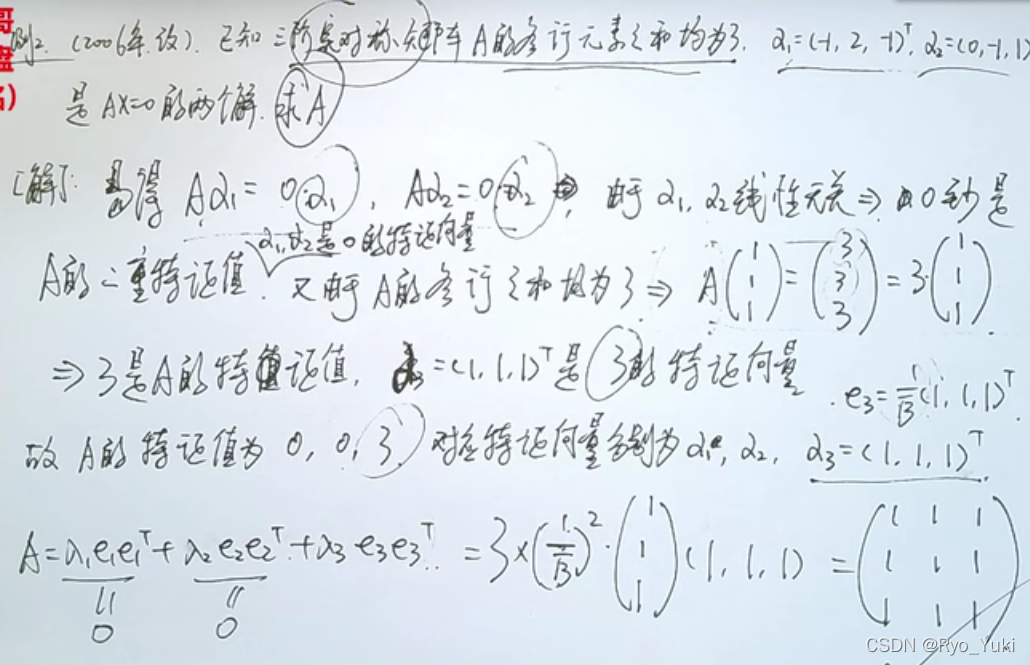 哥
盘
名)
例2. (2006年.改). 已知三阶实对称矩阵A的各行元素之和均为3. α₁=(-1, 2, -1)ᵀ, α₂=(0,-1,1)
是AX=0的两个解. 求A
[解]: 易得 Aα₁=0·α₁, Aα₂=0·α₂, 由于α₁, α₂线性无关⇒0至少是
α₁,α₂是0的特征向量
A的二重特征值. 又由于A的各行之和均为3⇒ A(1 1 1)=(3 3 3)=3·(1 1 1)
⇒3是A的特征值, α₃=(1,1,1)ᵀ是3的特征向量. e₃=1/√3(1,1,1)ᵀ
故A的特征值为0, 0, 3 对应特征向量分别为α₁, α₂, α₃=(1,1,1)ᵀ
A=λ₁e₁e₁ᵀ+λ₂e₂e₂ᵀ+λ₃e₃e₃ᵀ =3×(1/√3)²·(1 1 1)(1,1,1)=(1 1 1 1 1 1 1 1 1)
0 0
CSDN @Ryo_Yuki